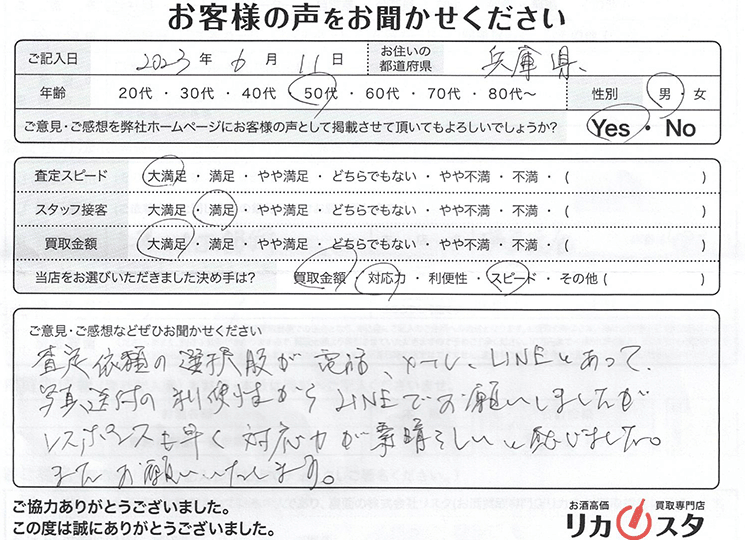 お客様の声をお聞かせください
ご記入日 2023 年 6 月 11 日 お住いの都道府県 兵庫県、
年齢 20代 ・ 30代 ・ 40代 ・ 50代 ・ 60代 ・ 70代 ・ 80代〜 性別 男 ・ 女
ご意見・ご感想を弊社ホームページにお客様の声として掲載させて頂いてもよろしいでしょうか? Yes ・ No
査定スピード 大満足 ・ 満足 ・ やや満足 ・ どちらでもない ・ やや不満 ・ 不満 ・ ( )
スタッフ接客 大満足 ・ 満足 ・ やや満足 ・ どちらでもない ・ やや不満 ・ 不満 ・ ( )
買取金額 大満足 ・ 満足 ・ やや満足 ・ どちらでもない ・ やや不満 ・ 不満 ・ ( )
当店をお選びいただきました決め手は? 買取金額 ・ 対応力 ・ 利便性 ・ スピード ・ その他 ( )
ご意見・ご感想などぜひお聞かせください
査定依頼の選択股が電話、メール、LINEとあって、
写真送付の利便性からLINEでお願いしましたが
レスポンスも早く対応力が素晴らしいと感じました。
またお願いいたします。
ご協力ありがとうございました。
この度は誠にありがとうございました。
お酒高価 買取専門店
リカスタ